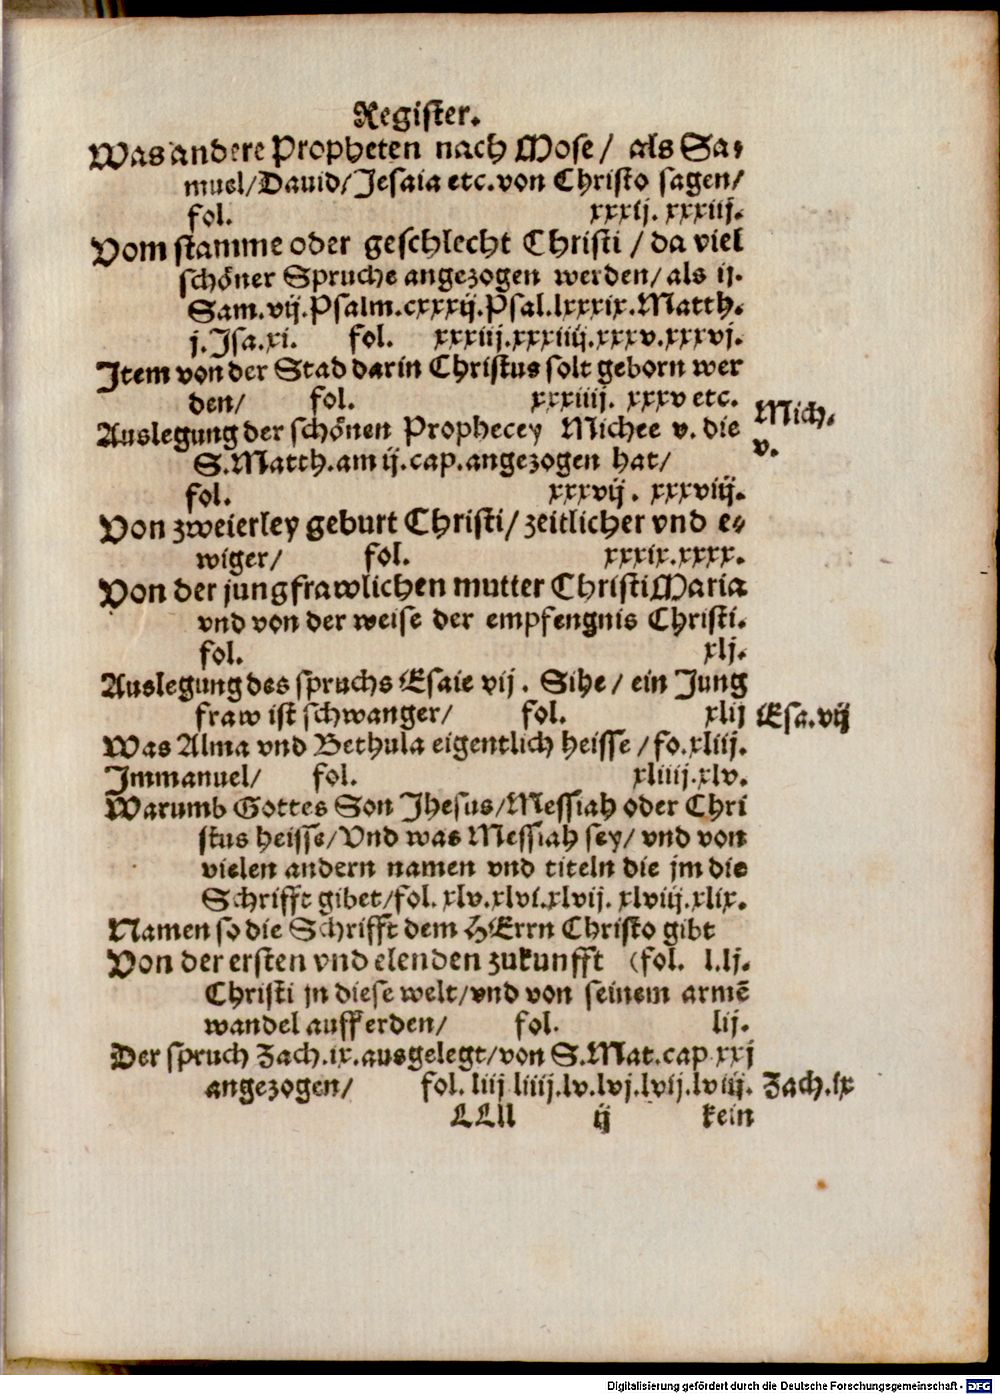 Register.
Was andere Propheten nach Mose/ als Sa-
muel/Dauid/Jesaia etc. von Christo sagen/
fol. xxxij. xxxiij.
Vom stamme oder geschlecht Christi / da viel
schöner Spruche angezogen werden/ als ij.
Sam.vij.Psalm.cxxxij.Psal.lxxxix.Matth.
j.Jsa.xi. fol. xxxiij.xxxiiij.xxxv.xxxvj.
Jtem von der Stad darin Christus solt geborn wer
den/ fol. xxxiiij. xxxv etc.
Mich.
v.
Auslegung der schönen Prophecey Michee v. die
S.Matth.am ij.cap.angezogen hat/
fol. xxxvij. xxxviij.
Von zweierley geburt Christi/ zeitlicher vnd e-
wiger/ fol. xxxix.xxxx.
Von der jungfrawlichen mutter Christi Maria
vnd von der weise der empfengnis Christi.
fol. xlj.
Auslegung des spruchs Esaie vij. Sihe/ ein Jung
fraw ist schwanger/ fol. xlij
Esa.vij
Was Alma vnd Bethula eigentlich heisse /fo.xliij.
Jmmanuel/ fol. xliiij.xlv.
Warumb Gottes Son Jhesus/Messiah oder Chri
stus heisse/Vnd was Messiah sey/ vnd von
vielen andern namen vnd titeln die jm die
Schrifft gibet/fol. xlv.xlvi.xlvij. xlviij.xlix.
Namen so die Schrifft dem HErrn Christo gibt
Von der ersten vnd elenden zukunfft (fol. l.lj.
Christi jn diese welt/vnd von seinem armē
wandel auff erden/ fol. lij.
Der spruch Zach.ix.ausgelegt/von S.Mat.cap xxj
angezogen/ fol. liij liiij.lv.lvj.lvij.lviij.
Zach.ix
LLll ij kein
Digitalisierung gefördert durch die Deutsche Forschungsgemeinschaft - DFG